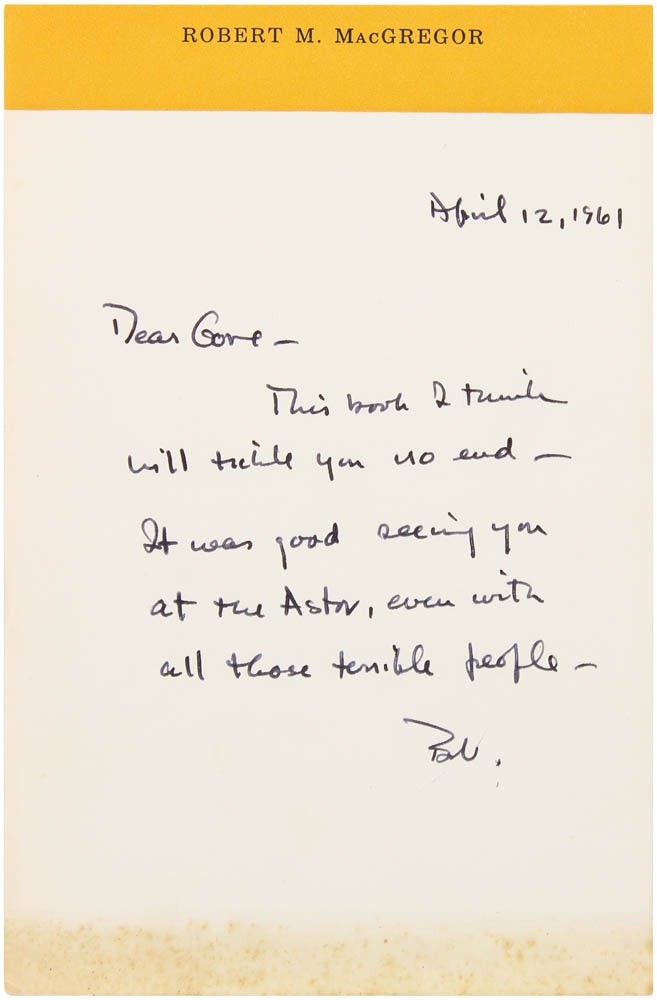 ROBERT M. MACGREGOR
April 12, 1961
Dear Gore —
This book I think
will tickle you no end —
It was good seeing you
at the Astor, even with
all those terrible people —
Bob.